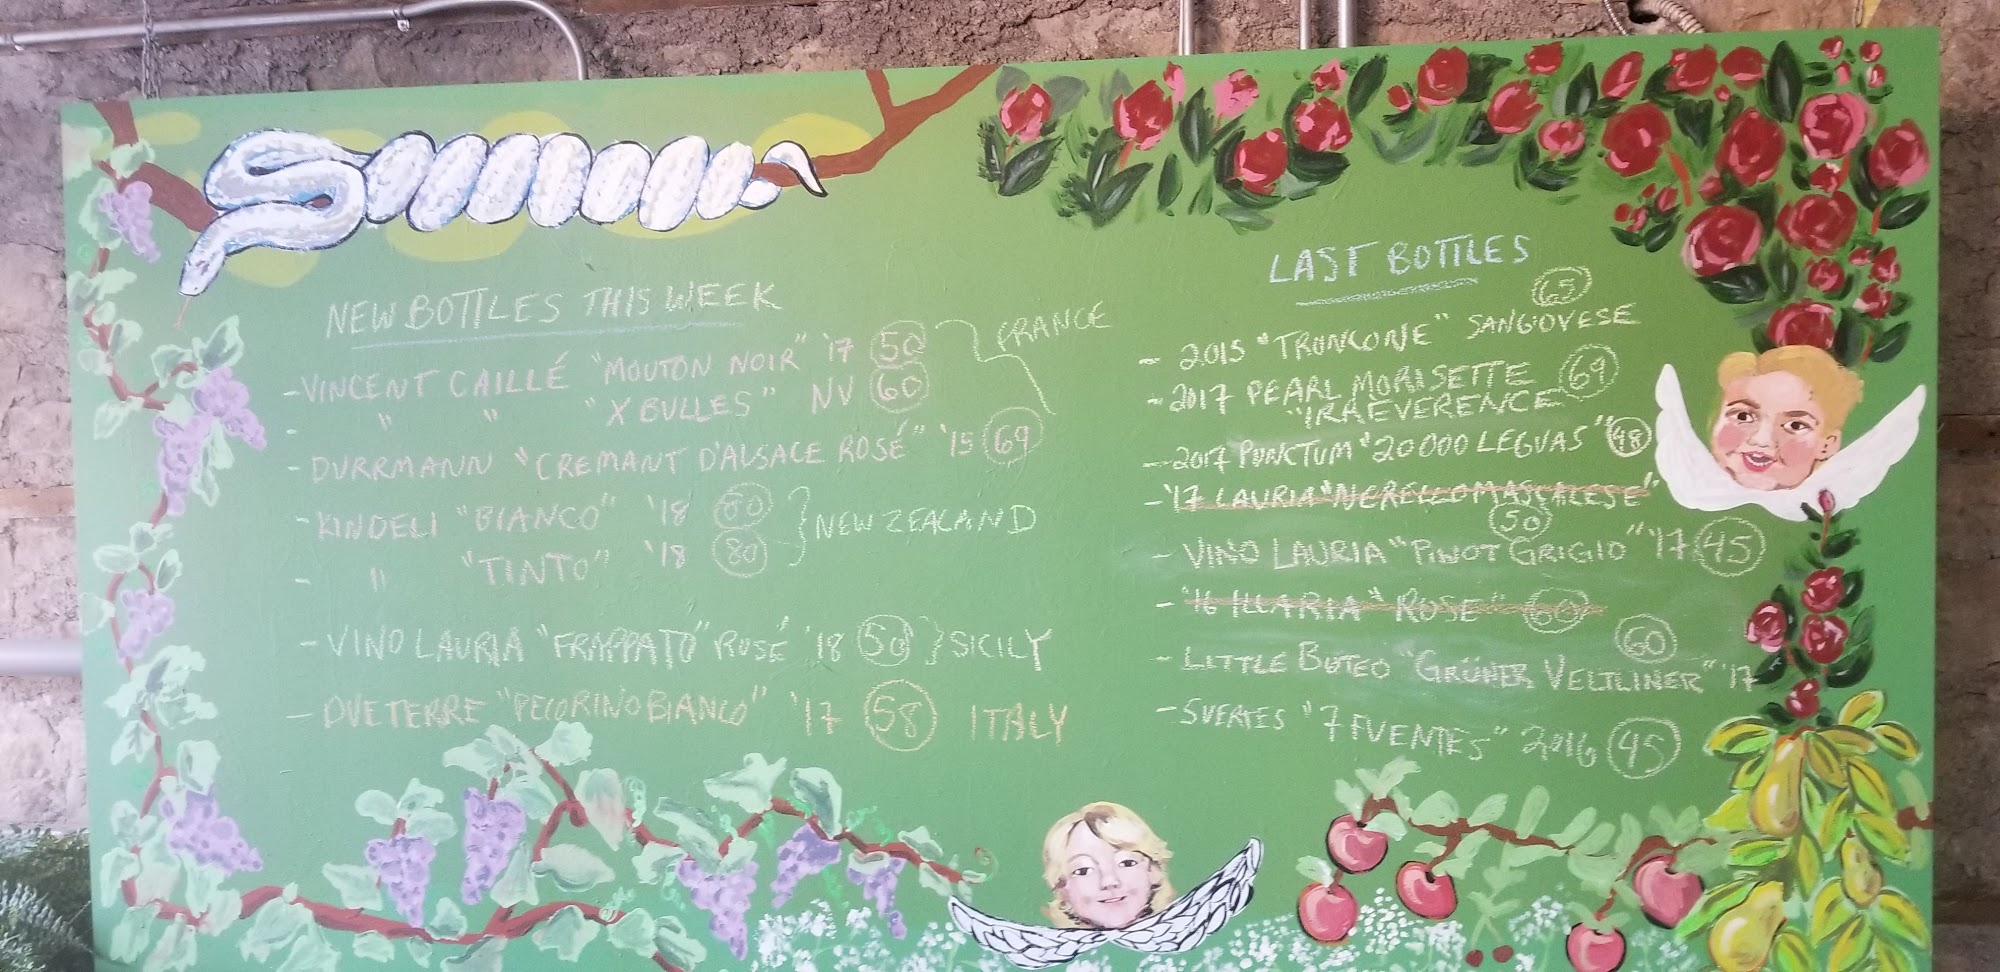 NEW BOTTLES THIS WEEK
- VINCENT CAILLÉ "MOUTON NOIR" '17 50
- " " "X BULLES" NV 60
FRANCE
- DURRMANN "CREMANT D'ALSACE ROSÉ" '15 69
- KINDELI "BIANCO" '18 80
- " "TINTO" '18 80
NEW ZEALAND
- VINO LAURIA "FRAPPATO" ROSÉ '18 50 SICILY
- DUE TERRE "PECORINO BIANCO" '17 58 ITALY
LAST BOTTLES
- 2015 "TRONCONE" SANGIOVESE 65
- 2017 PEARL MORISETTE 69
"IRREVERENCE"
- 2017 PUNCTUM "20000 LEGUAS" 48
- '17 LAURIA "NERELLO MASCALESE"
50
- VINO LAURIA "PINOT GRIGIO" '17 45
- '16 ILLARIA "ROSE" 60
60
- LITTLE BUTEO "GRÜNER VELTLINER" '17
- SUERTES "7 FUENTES" 2016 45